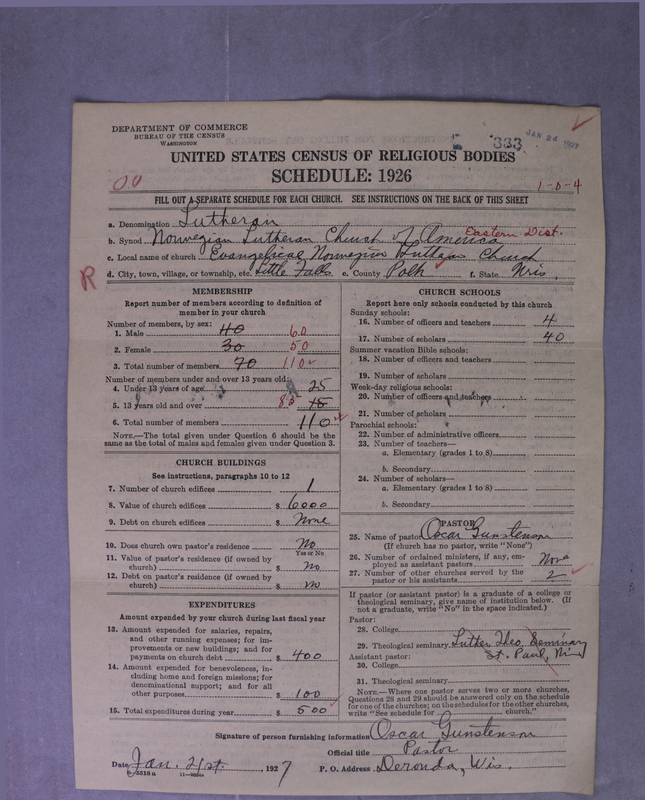 DEPARTMENT OF COMMERCE
BUREAU OF THE CENSUS
WASHINGTON
333
JAN 24 1927
UNITED STATES CENSUS OF RELIGIOUS BODIES
SCHEDULE: 1926
1-0-4
FILL OUT A SEPARATE SCHEDULE FOR EACH CHURCH. SEE INSTRUCTIONS ON THE BACK OF THIS SHEET
a. Denomination Lutheran
b. Synod Norwegian Lutheran Church of America Eastern Dist.
c. Local name of church Evangelical Norwegian Luth Church
d. City, town, village, or township, etc. Little Falls e. County Polk f. State Wis.
R
MEMBERSHIP
Report number of members according to definition of member in your church
Number of members, by sex:
1. Male 40 60
2. Female 30 50
3. Total number of members 70 110
Number of members under and over 13 years old:
4. Under 13 years of age 25
5. 13 years old and over 85 45
6. Total number of members 110
NOTE.—The total given under Question 6 should be the same as the total of males and females given under Question 3.
CHURCH BUILDINGS
See instructions, paragraphs 10 to 12
7. Number of church edifices 1
8. Value of church edifices $ 6000
9. Debt on church edifices $ None
10. Does church own pastor's residence No
Yes or No
11. Value of pastor's residence (if owned by church) $ No
12. Debt on pastor's residence (if owned by church) $ No
EXPENDITURES
Amount expended by your church during last fiscal year
13. Amount expended for salaries, repairs, and other running expenses; for improvements or new buildings; and for payments on church debt $ 400
14. Amount expended for benevolences, including home and foreign missions; for denominational support; and for all other purposes $ 100
15. Total expenditures during year $ 500
CHURCH SCHOOLS
Report here only schools conducted by this church
Sunday schools:
16. Number of officers and teachers 4
17. Number of scholars 40
Summer vacation Bible schools:
18. Number of officers and teachers
19. Number of scholars
Week-day religious schools:
20. Number of officers and teachers
21. Number of scholars
Parochial schools:
22. Number of administrative officers
23. Number of teachers—
a. Elementary (grades 1 to 8)
b. Secondary
24. Number of scholars—
a. Elementary (grades 1 to 8)
b. Secondary
PASTOR
25. Name of pastor Oscar Gunstenson
(If church has no pastor, write "None")
26. Number of ordained ministers, if any, employed as assistant pastors None
27. Number of other churches served by the pastor or his assistants 2
If pastor (or assistant pastor) is a graduate of a college or theological seminary, give name of institution below. (If not a graduate, write "No" in the space indicated.)
Pastor:
28. College
29. Theological seminary Luther Theo. Seminary
St. Paul,
Assistant pastor:
30. College
31. Theological seminary
NOTE.—Where one pastor serves two or more churches, Questions 28 and 29 should be answered only on the schedule for one of the churches; on the schedules for the other churches, write "See schedule for church."
Signature of person furnishing information Oscar Gunstenson
Official title Pastor
Date Jan. 21st, 1927 P. O. Address Deronda, Wis.